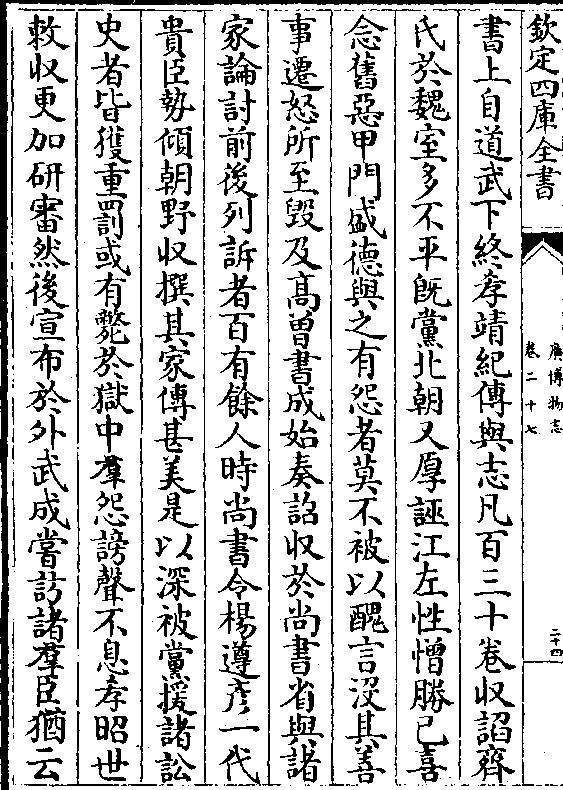 欽定四庫全書
廣博物志
卷二十七
二十四
書上自道武下終孝靖紀傳與志凡百三十卷收諂齊
氏於魏室多不平既黨北朝又厚誣江左性憎勝己喜
念舊惡甲門盛德與之有怨者莫不被以醜言沒其善
事遷怒所至毀及髙曽書成始奏詔收於尚書省與諸
家論討前後列訴者百有餘人時尚書令楊遵彥一代
貴臣勢傾朝野收撰其家傳甚美是以深被黨援諸訟
史者皆獲重罰或有斃於獄中羣怨謗聲不息孝昭世
敕收更加研審然後宣布於外武成嘗訪諸羣臣猶云